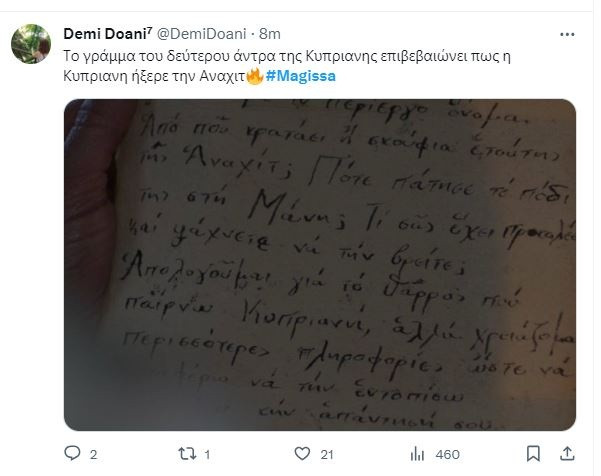 Demi Doani⁷ @DemiDoani · 8m
Το γράμμα του δεύτερου άντρα της Κυπριανης επιβεβαιώνει πως η
Κυπριανη ήξερε την Αναχιτ🔥#Magissa
περίεργο ὄνομα.
Ἀπό ποῦ κρατάει ἡ σκούφια ἐτούτης
τῆς Ἀναχίτ; Πότε πάτησε τό πόδι
της στή Μάνη; Τί σᾶς ἔχει προκαλέσ
καί ψάχνετε νά τήν βρεῖτε;
Ἀπολογοῦμαι γιά τό θάρρος πού
παίρνω Κυπριανή, ἀλλά χρειάζομα
περισσότερες πληροφορίες ὥστε νά
νά τήν ἐντοπίσω
τήν ἀπάντησή σου
2 1 21 460